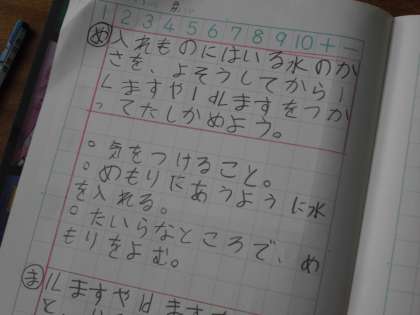 1 2 3 4 5 6 7 8 9 10 + −
め 入れものにはいる水のか
さを、よそうしてから1
Lますや1dLますをつか
ってたしかめよう。
○気をつけること。
○めもりにあうように水
を入れる。
○たいらなところで、め
もりをよむ。
ま 1Lますや1dLます